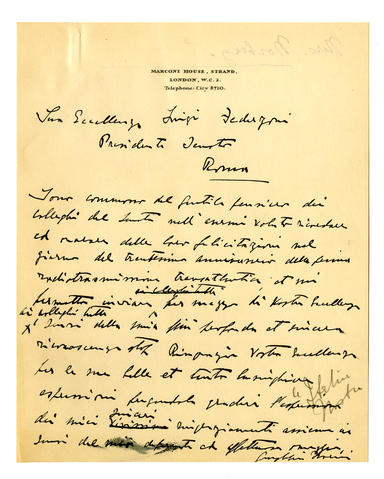 MARCONI HOUSE, STRAND,
LONDON, W.C.2.
Telephone: City 8710.
Sua Eccellenza Luigi Federzoni
Presidente Senato
Roma
Sono commosso del gentile pensiero dei
colleghi del Senato nell'avermi voluto ricordare
ed mandare delle loro felicitazioni nel
giorno del trentesimo anniversario della prima
radiotrasmissione transatlantica, et mi
ai colleghi tutti
permetto inviare per mezzo di Vostra Eccellenza
ai colleghi tutti
i sensi della mia più profonda et sincera
riconoscenza stop Ringrazio Vostra Eccellenza
per le sue belle et tanto lusinghiere
espressioni pregandola gradire
dei miei sinceri ringraziamenti assieme ai
sensi del mio devoto ed affettuoso omaggio